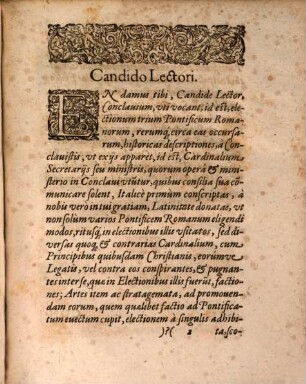 Candido Lectori.
EN damus tibi, Candide Lector,
Conclauium, vti vocant, id est, ele-
ctionum trium Pontificum Roma-
norum, rerumq́; circa eas occursa-
rum, historicas descriptiones, à Con-
clauistis, vt ex ijs apparet, id est, Cardinalium
Secretarijs seu ministris, quorum opera & mini-
sterio in Conclaui vtũtur, quibus consilia sua cõ-
municare solent, Italicè primùm conscriptas, à
nobis verò in tui gratiam, Latinitate donatas, vt
non solùm varios Pontificem Romanum eligendi
modos, ritusq́; in electionibus illis vsitatos, sed di-
uersas quoq; & contrarias Cardinalium, cum
Principibus quibusdam Christianis, eorúmve
Legatis, vel contra eos conspirantes, & pugnan-
tes interse, qua in Electionibus illis fuerũt, factio-
nes; Artes item ac stratagemata, ad promouen-
dam eorum, quem qualibet factio ad Pontifica-
tum euectum cupit, electionem à singulis adhibi-
)?( 2 ta, sco-